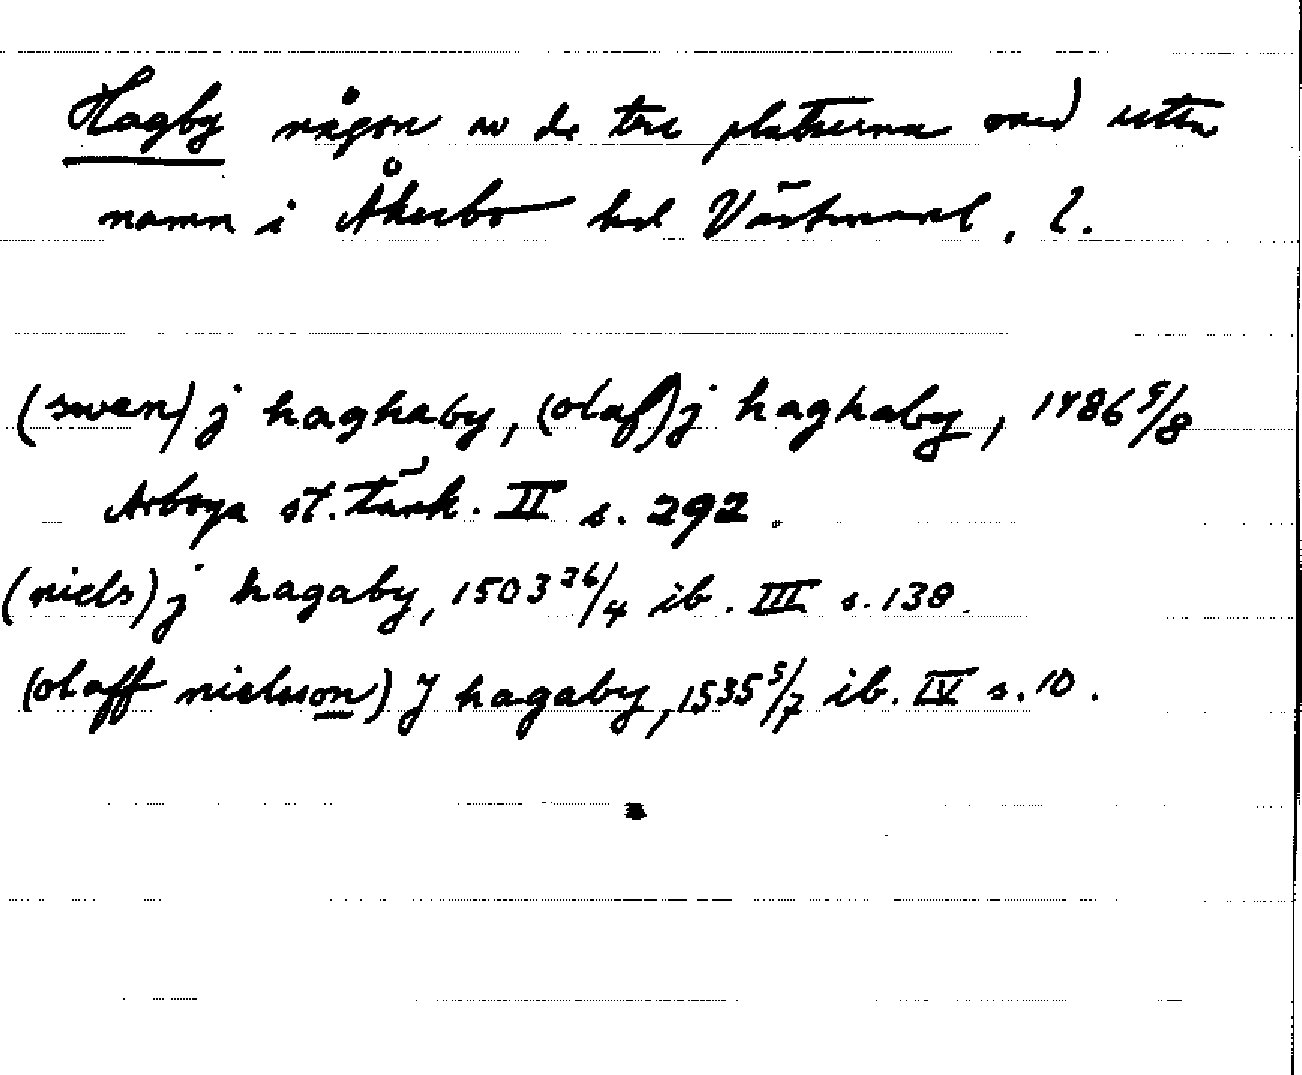 Hagby någon av de tre platserna med detta
namn i Åkerbo hd Västmanl. l.
(swen) j haghaby, (olaf) j haghaby, 1486 5/8
Arboga st. tänk. II s. 292.
(niels) j hagaby, 1503 26/4 ib. III s. 138.
(olaff nielsson) J hagaby, 1535 5/7 ib. IV s. 10.